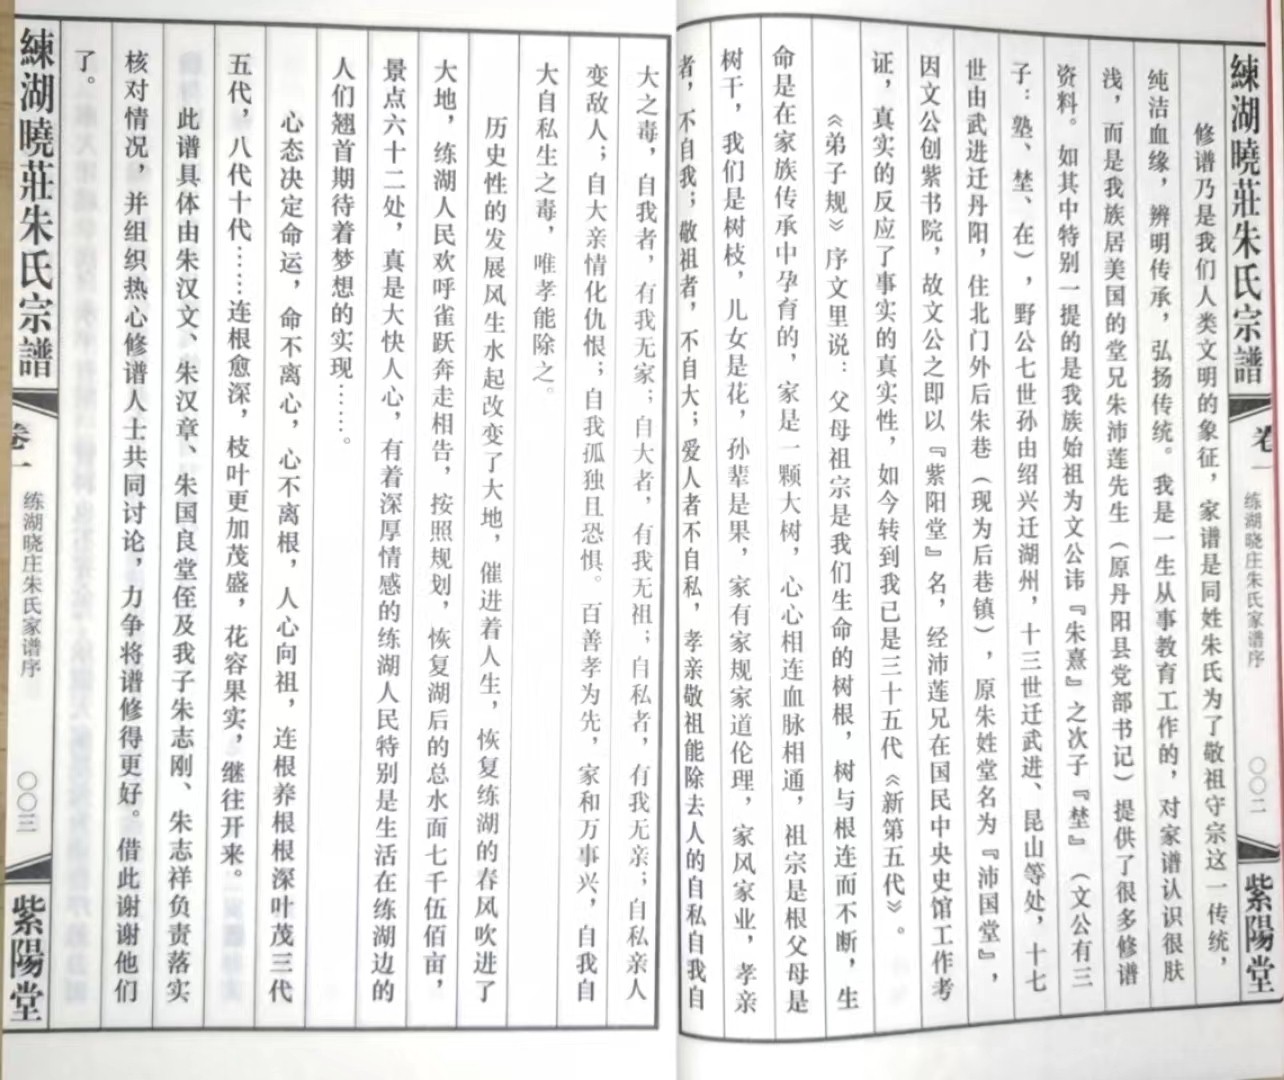 練湖曉莊朱氏宗譜
卷一
练湖晓庄朱氏家谱序
〇〇二
紫陽堂
修谱乃是我们人类文明的象征，家谱是同姓朱氏为了敬祖守宗这一传统，
纯洁血缘，辨明传承，弘扬传统。我是一生从事教育工作的，对家谱认识很肤
浅，而是我族居美国的堂兄朱沛莲先生（原丹阳县党部书记）提供了很多修谱
资料。如其中特别一提的是我族始祖为文公讳『朱熹』之次子『埜』（文公有三
子：塾、埜、在），野公七世孙由绍兴迁湖州，十三世迁武进、昆山等处，十七
世由武进迁丹阳，住北门外后朱巷（现为后巷镇），原朱姓堂名为『沛国堂』，
因文公创紫书院，故文公之即以『紫阳堂』名，经沛莲兄在国民中央史馆工作考
证，真实的反应了事实的真实性，如今转到我已是三十五代《新第五代》。
《弟子规》序文里说：父母祖宗是我们生命的树根，树与根连而不断，生
命是在家族传承中孕育的，家是一颗大树，心心相连血脉相通，祖宗是根父母是
树干，我们是树枝，儿女是花，孙辈是果，家有家规家道伦理，家风家业，孝亲
者，不自我；敬祖者，不自大；爱人者不自私，孝亲敬祖能除去人的自私自我自
大之毒，自我者，有我无家；自大者，有我无祖；自私者，有我无亲；自私亲人
变敌人；自大亲情化仇恨；自我孤独且恐惧。百善孝为先，家和万事兴，自我自
大自私生之毒，唯孝能除之。
历史性的发展风生水起改变了大地，催进着人生，恢复练湖的春风吹进了
大地，练湖人民欢呼雀跃奔走相告，按照规划，恢复湖后的总水面七千伍佰亩，
景点六十二处，真是大快人心，有着深厚情感的练湖人民特别是生活在练湖边的
人们翘首期待着梦想的实现……。
心态决定命运，命不离心，心不离根，人心向祖，连根养根根深叶茂三代
五代，八代十代……连根愈深，枝叶更加茂盛，花容果实，继往开来。
此谱具体由朱汉文、朱汉章、朱国良堂侄及我子朱志刚、朱志祥负责落实
核对情况，并组织热心修谱人士共同讨论，力争将谱修得更好。借此谢谢他们
了。
練湖曉莊朱氏宗譜
卷一
练湖晓庄朱氏家谱序
〇〇三
紫陽堂